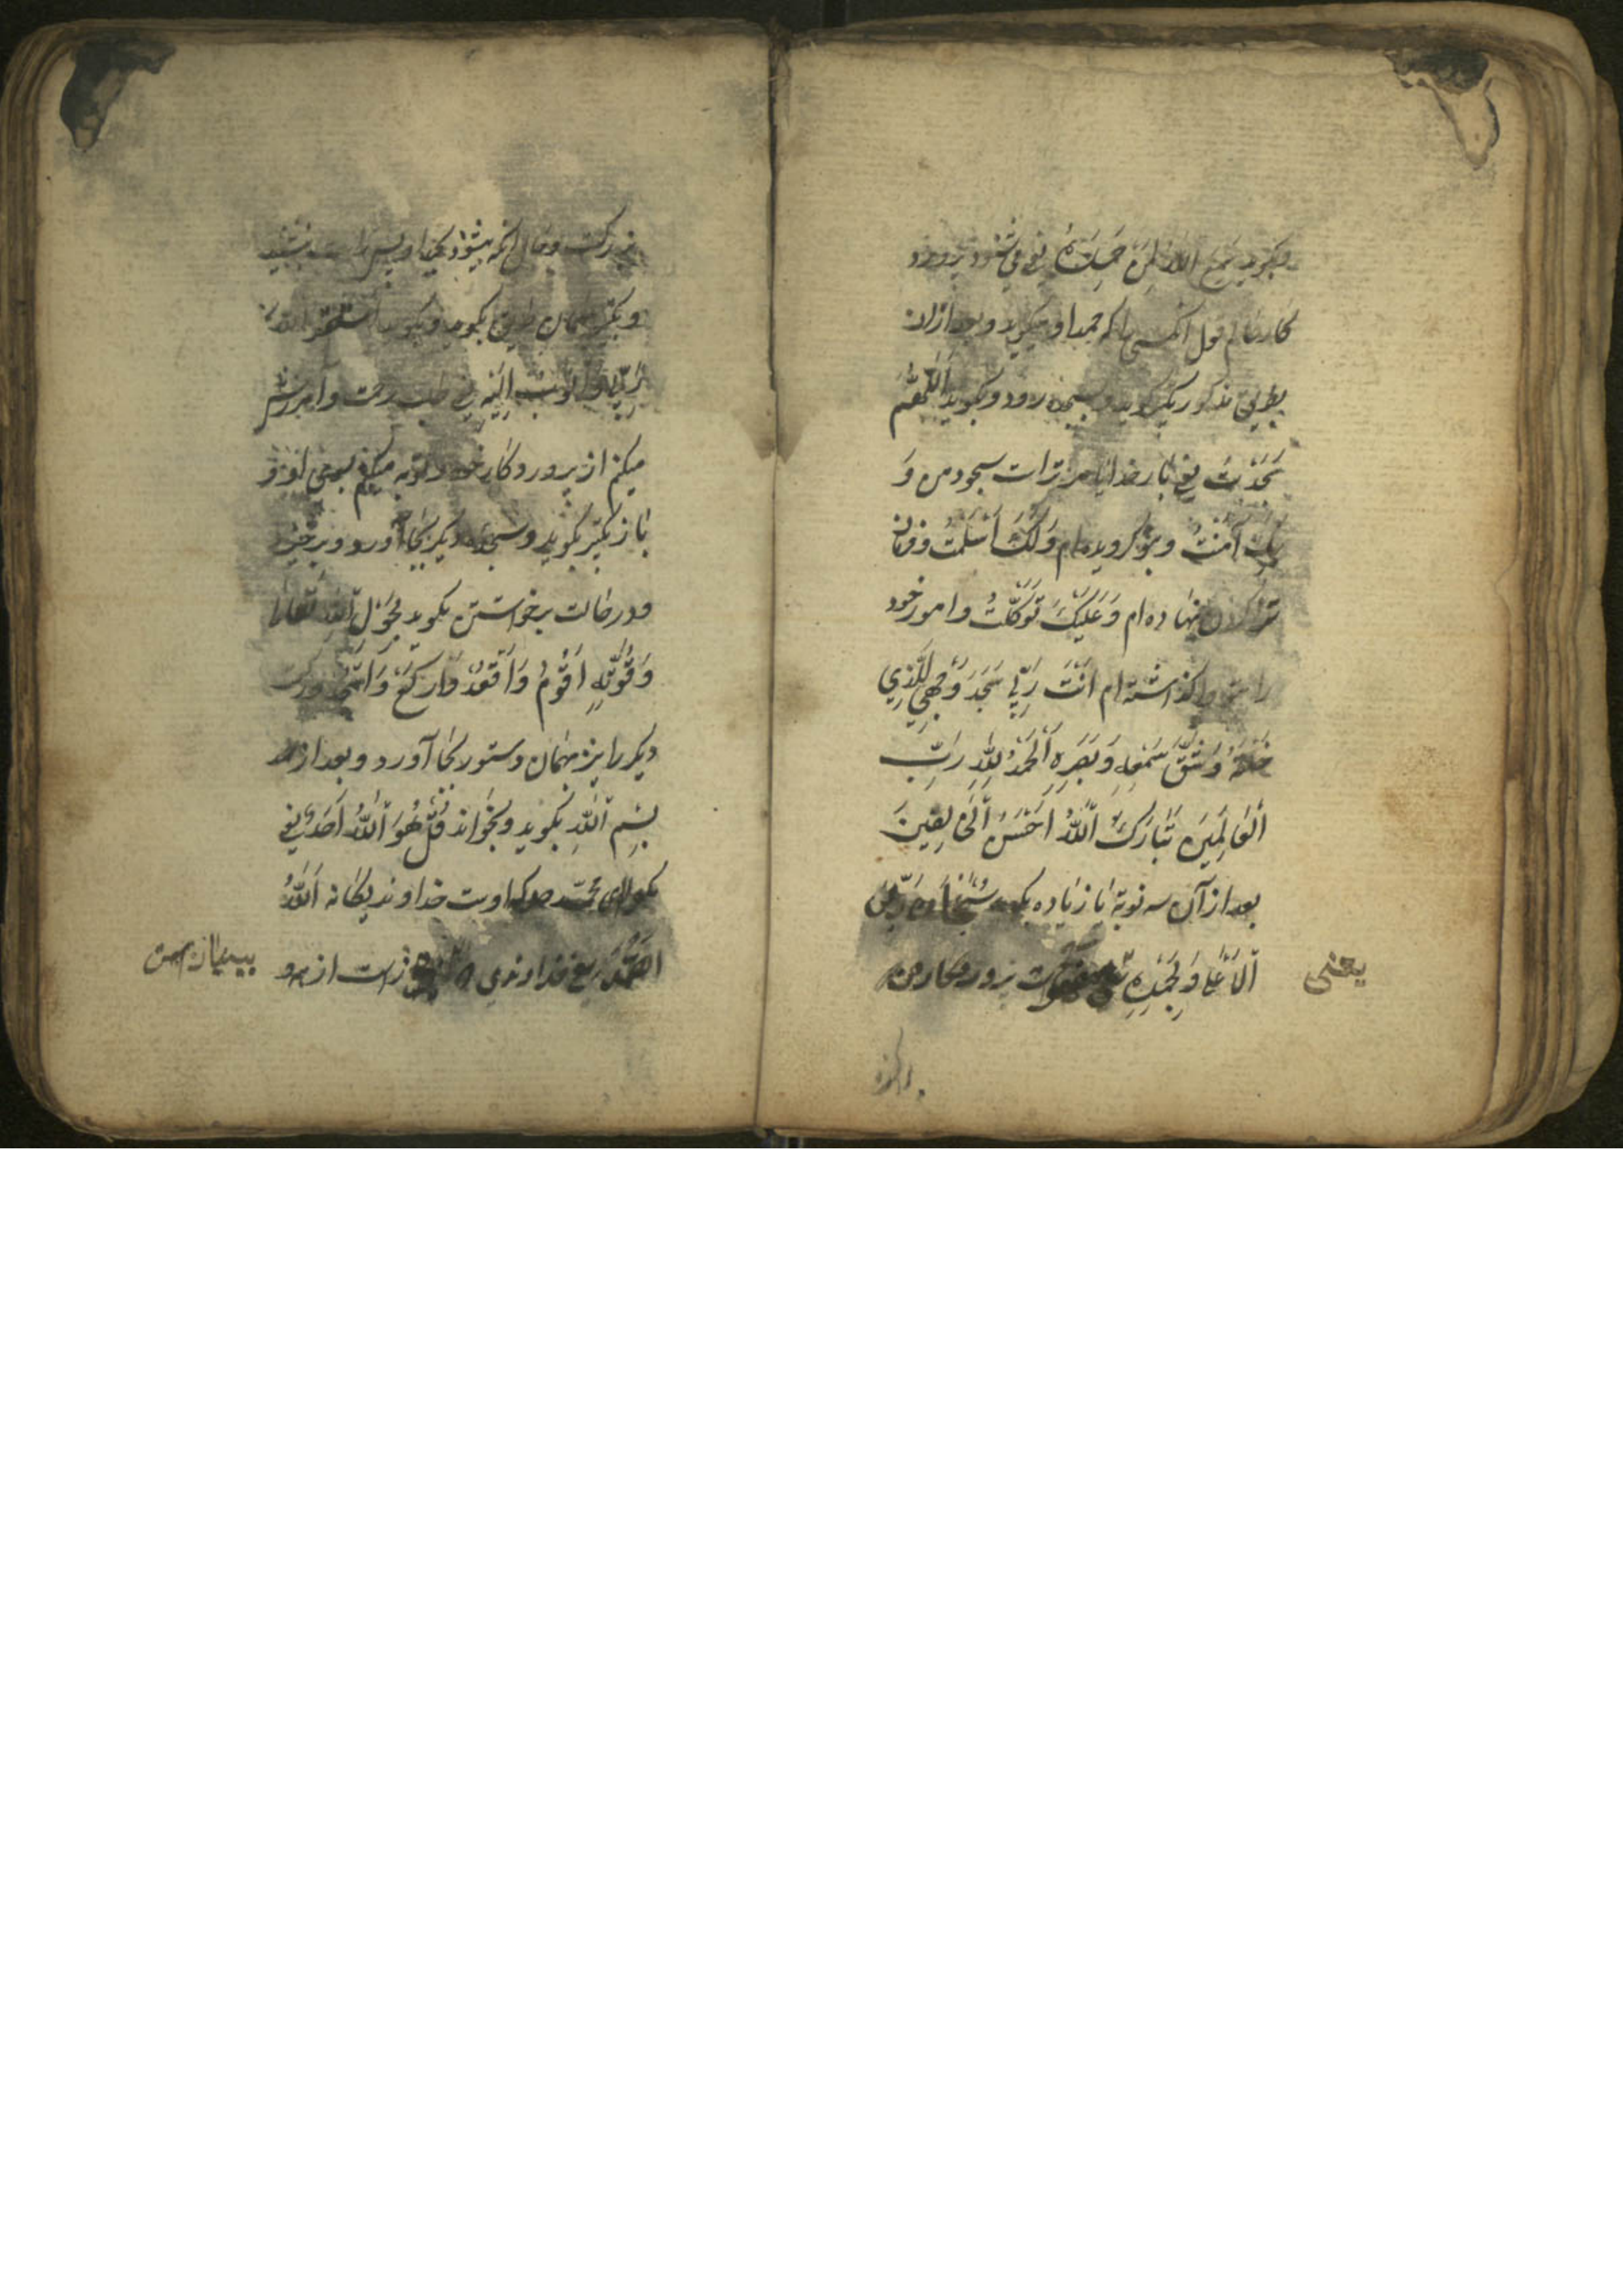 وبگوید سمع الله لِمَن حَمِدَهُ یعنی می شنود پرورد
کار عالم قول انکسی را که حمد او میگوید و بعد ازان
بطریق مذکور تکبیر گوید و بسجده رود و بگوید اَللّٰهُمَّ
سَجَدْتُ یعنی بار خدایا مر تراست سجود من وَ
بِکَ آمَنْتُ و بتو گرویده ام وَلَکَ اَسْلَمْتُ و فرمان
ترا گردن نهاده ام وَعَلَیْکَ تَوَکَّلْتُ و امور خود
را بتو واگذاشته ام اَنْتَ رَبّی سَجَدَ وَجْهِی لِلَّذِی
خَلَقَهُ وَشَقَّ سَمْعَهِ وَبَصَرِهِ اَلْحَمْدُ لِلّٰهِ رَبِّ
الْعَالَمِینَ تَبَارَکَ اللّٰهُ اَحْسَنُ الْخَالِقِینَ
بعد از آن سه نوبة یا زیاده بگوید سُبْحَانَ رَبِّیَ
الْاَعْلٰی وَبِحَمْدِهِ پرورد کار من
یعنی
بزرگست و حال انکه بحمد او پس راست بنشیند
و تکبیر بهمان طریق بگوید و بگوید استغفر الله
رَبّی وَاَتُوبُ اِلَیْهِ یعنی طلب رحمت و آمرزش
میکنم از پروردکار خود و توبه میکنم بسوی او و
باز تکبیر بگوید و سجده دیگر بجا آورد و برخیزد
و در حالت برخواستن بگوید بِحَوْلِ اللّٰهِ تَعَالٰی
وَقُوَّتِهِ اَقُومُ وَاَقْعُدُ وَارْکَعُ وَاَسْجُدُ و رکعت
دیگر را نیز بهمان دستور بجا آورد و بعد از حمد
بِسْمِ اللّٰهِ بگوید و بخواند قُلْ هُوَ اللّٰهُ اَحَدٌ یعنی
بگو ای محمّد ص که اوست خداوند یکانه اَللّٰهُ
الصَّمَدُ یعنی خداوندی از همه